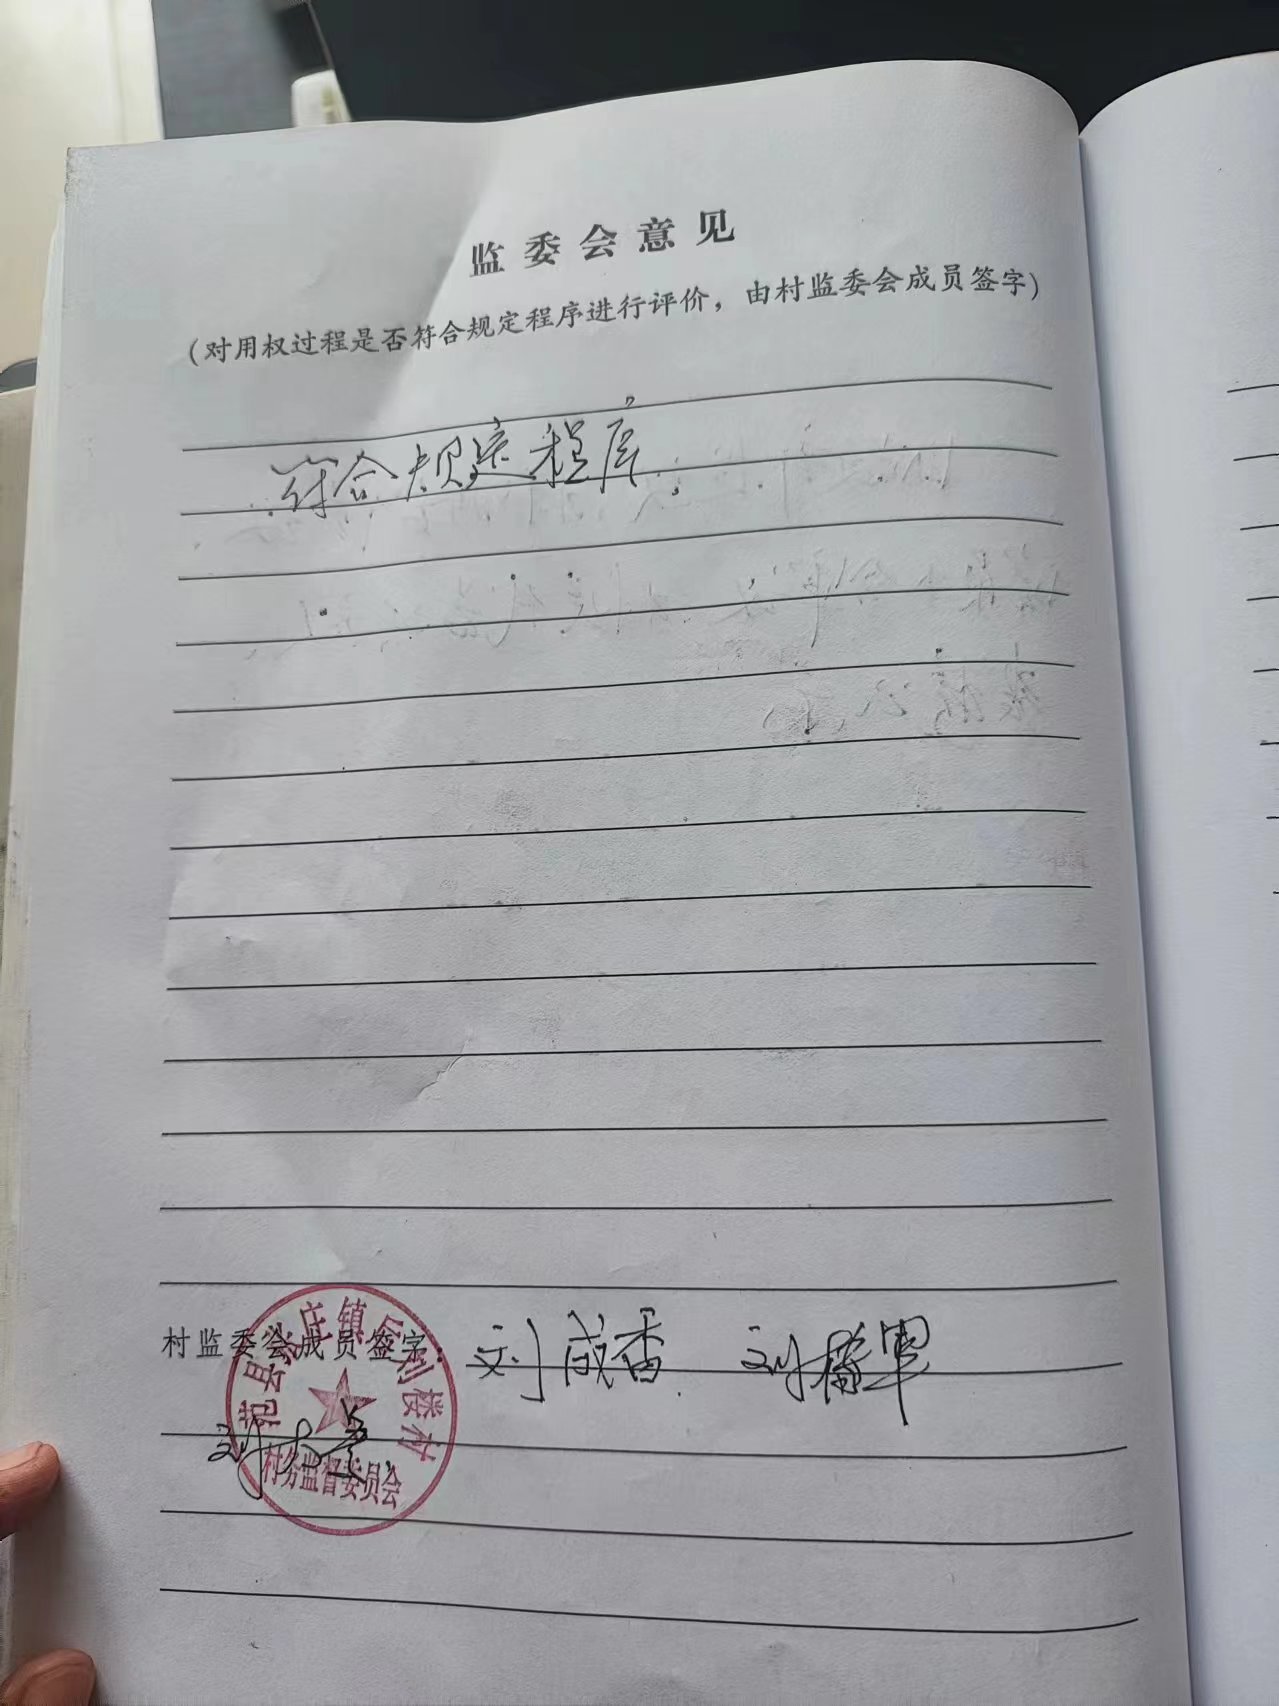 监委会意见
(对用权过程是否符合规定程序进行评价，由村监委会成员签字)
符合规定程序
村监委会成员签字：
刘成香 刘
刘
范县 庄镇 刘楼村
村务监督委员会